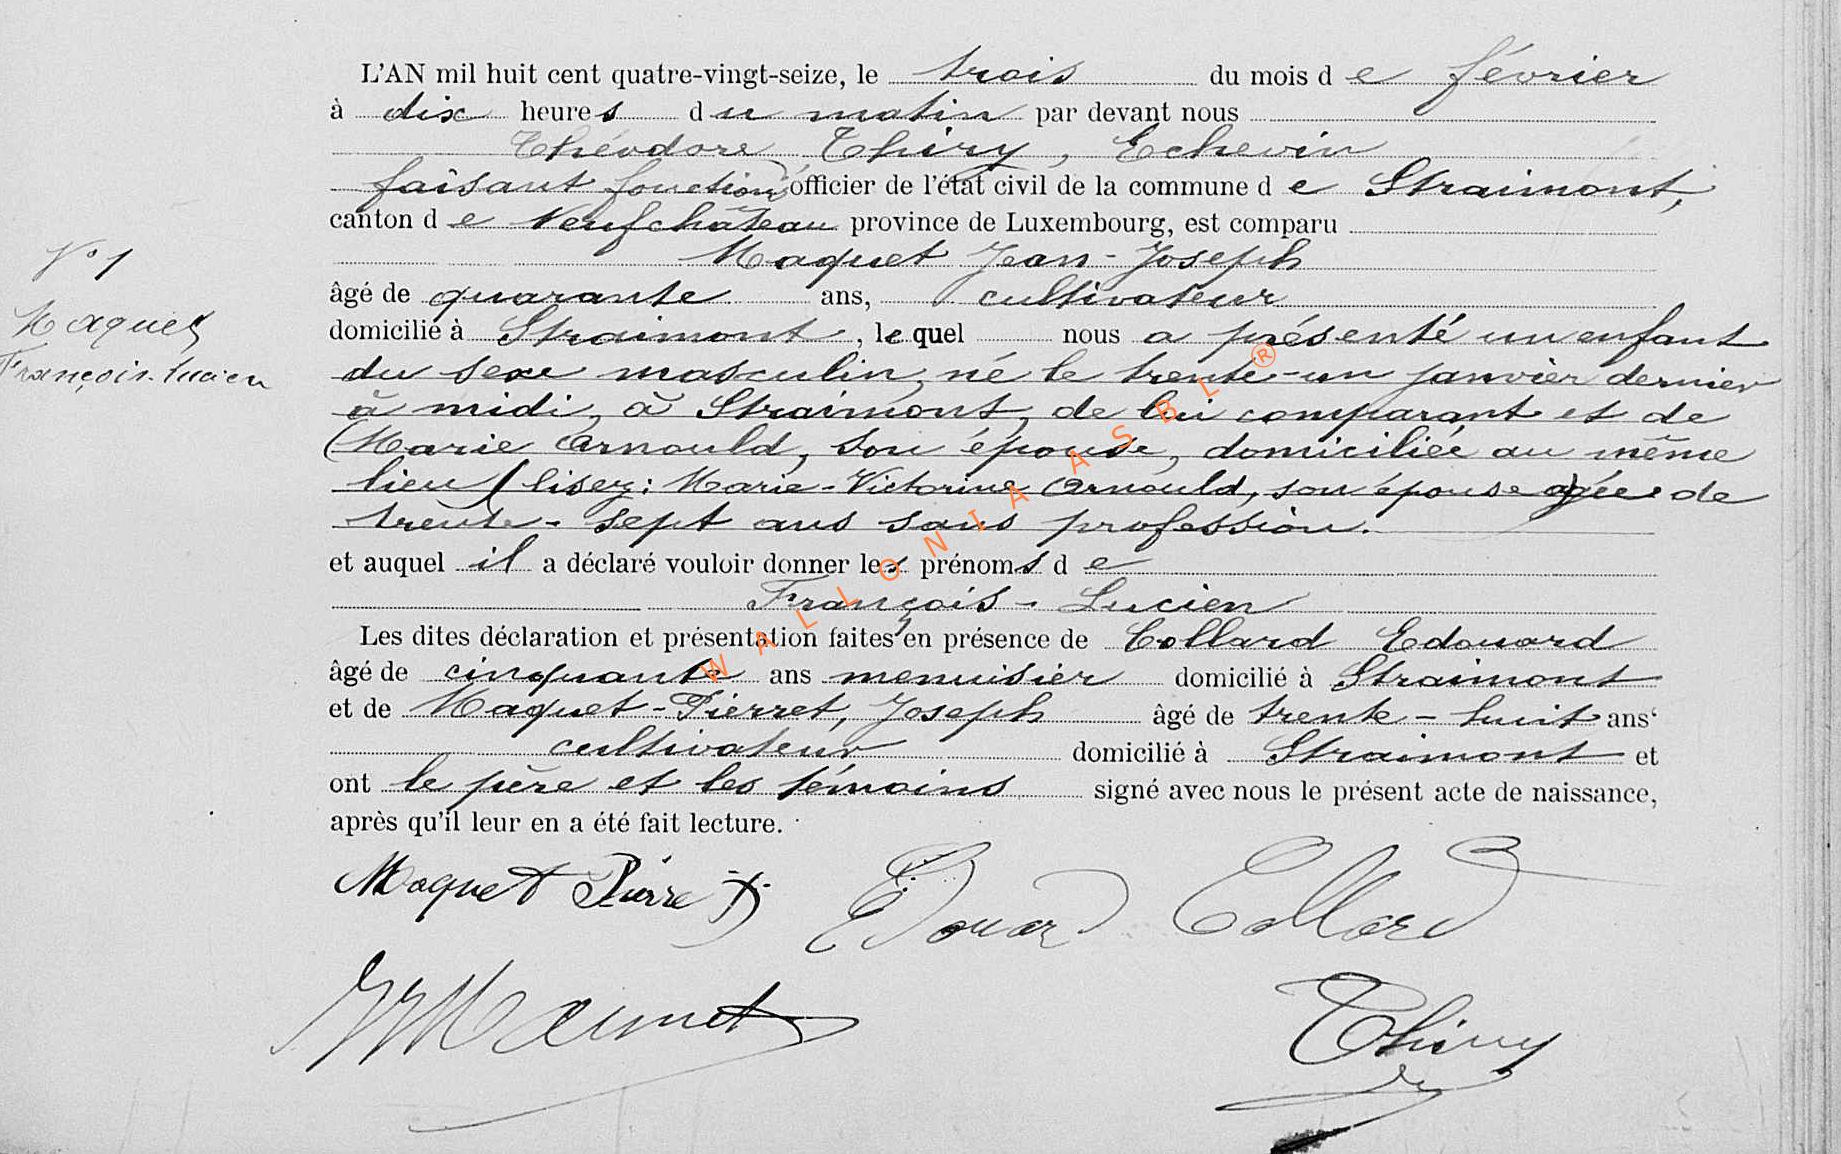 L'AN mil huit cent quatre-vingt-seize, le trois du mois de février
à dix heures du matin par devant nous
Théodore Thiry, Echevin
faisant fonctions officier de l'état civil de la commune de Straimont,
canton de Neufchâteau province de Luxembourg, est comparu
Maquet Jean-Joseph
N° 1
Maquet
François-Lucien
âgé de quarante ans, cultivateur
domicilié à Straimont, lequel nous a présenté un enfant
du sexe masculin, né le trente-un janvier dernier
à midi, à Straimont, de lui comparant et de
(Marie Arnould, son épouse, domiciliée au même
lieu (lisez: Marie-Victorine Arnould, son épouse âgée de
trente-sept ans sans profession.
et auquel il a déclaré vouloir donner les prénoms de
François-Lucien
Les dites déclaration et présentation faites en présence de Collard Edouard
âgé de cinquante ans menuisier domicilié à Straimont
et de Maquet-Pierret, Joseph âgé de trente-huit ans
cultivateur domicilié à Straimont et
ont le père et les témoins signé avec nous le présent acte de naissance,
après qu'il leur en a été fait lecture.
Maquet Edouard Collard
JJMaquet Thiry
WALLONIA ASBL ®